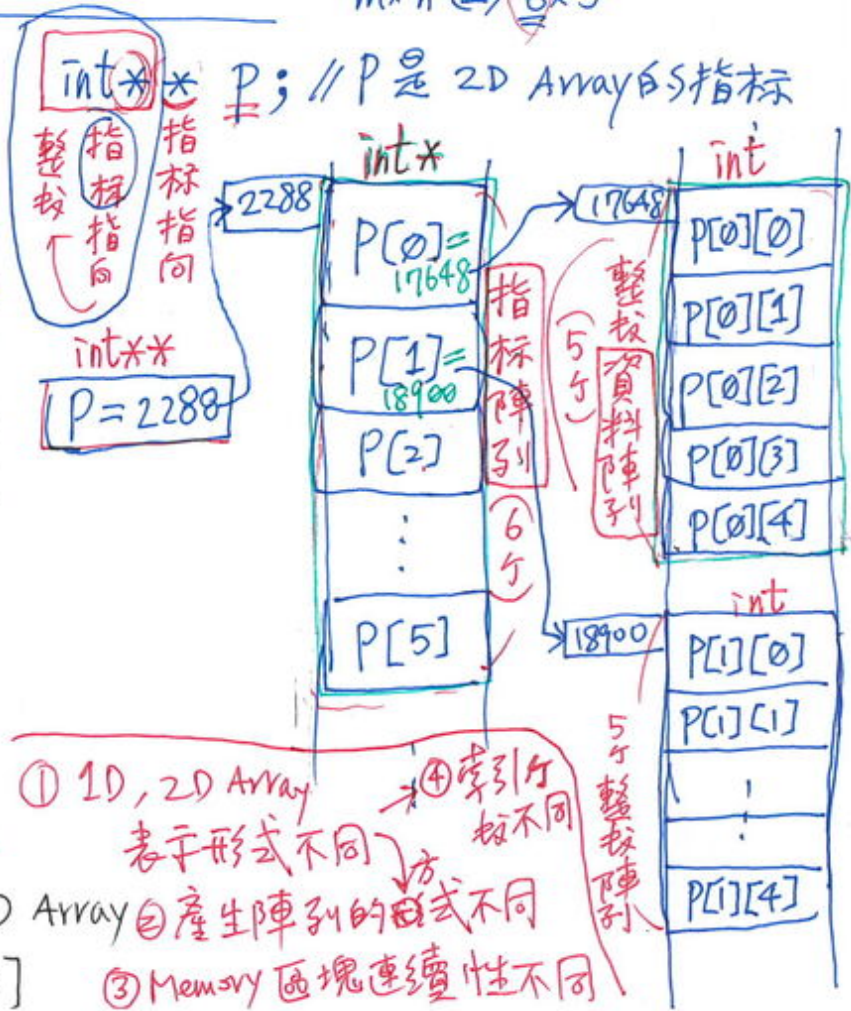 int* * P; // P是 2D Array的指标
整数 指标指向 指标指向
int**
P = 2288
int*
2288
P[0]=
17648
P[1]=
18900
P[2]
P[5]
指标陣列
(6个)
int
17648
P[0][0]
P[0][1]
P[0][2]
P[0][3]
P[0][4]
整数
資料陣列
(5个)
int
18900
P[1][0]
P[1][1]
P[1][4]
5个整数陣列
① 1D, 2D Array
表示形式不同
④索引个
数不同
方
Array ②產生陣列的式不同
] ③Memory 區塊連續性不同